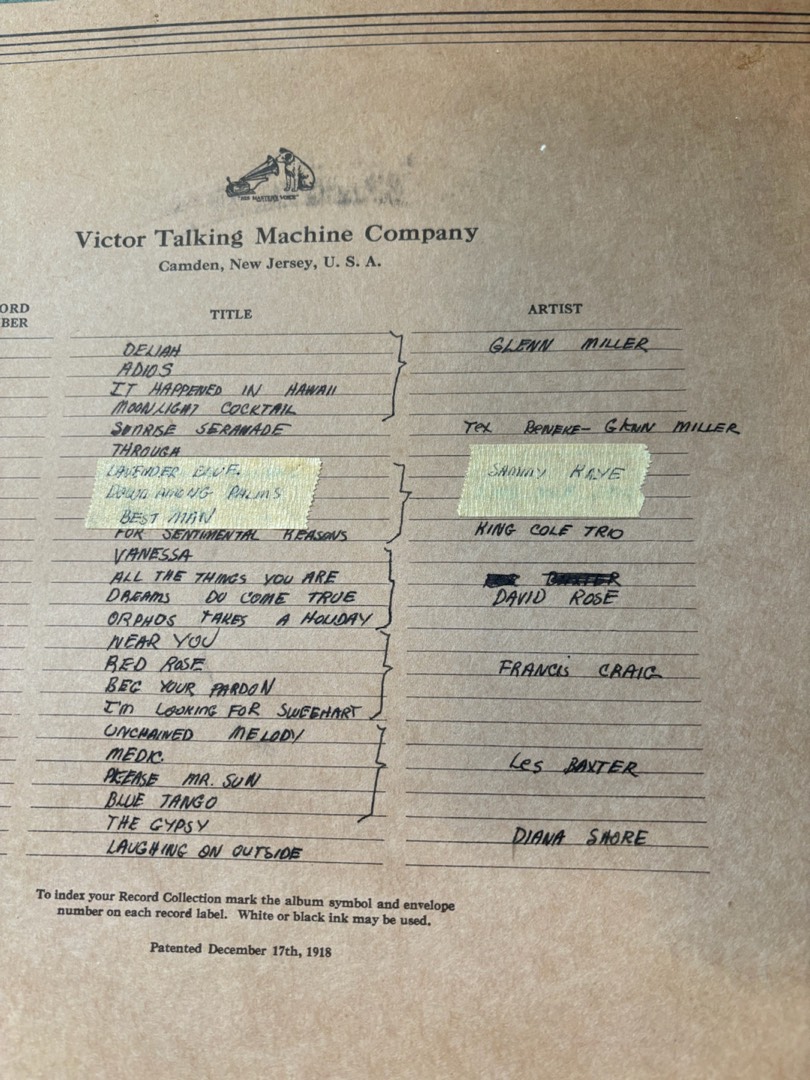 "HIS MASTER'S VOICE"
Victor Talking Machine Company
Camden, New Jersey, U. S. A.
ORD
BER
TITLE
ARTIST
DELIAH
GLENN MILLER
ADIOS
IT HAPPENED IN HAWAII
MOONLIGHT COCKTAIL
SUNRISE SERANADE
Tex BENEKE- GLENN MILLER
THROUGH
LAVENDER BLUE
SAMMY KAYE
DOWN AMONG PALMS
BEST MAN
FOR SENTIMENTAL REASONS
KING COLE TRIO
VANESSA
ALL THE THINGS YOU ARE
BAXTER
DREAMS DO COME TRUE
DAVID ROSE
ORPHOS TAKES A HOLIDAY
NEAR YOU
RED ROSE
FRANCIS CRAIG
BEG YOUR PARDON
I'M LOOKING FOR SWEEHART
UNCHAINED MELODY
MEDIC
LES BAXTER
PLEASE MR. SUN
BLUE TANGO
THE GYPSY
DIANA SHORE
LAUGHING ON OUTSIDE
To index your Record Collection mark the album symbol and envelope
number on each record label. White or black ink may be used.
Patented December 17th, 1918